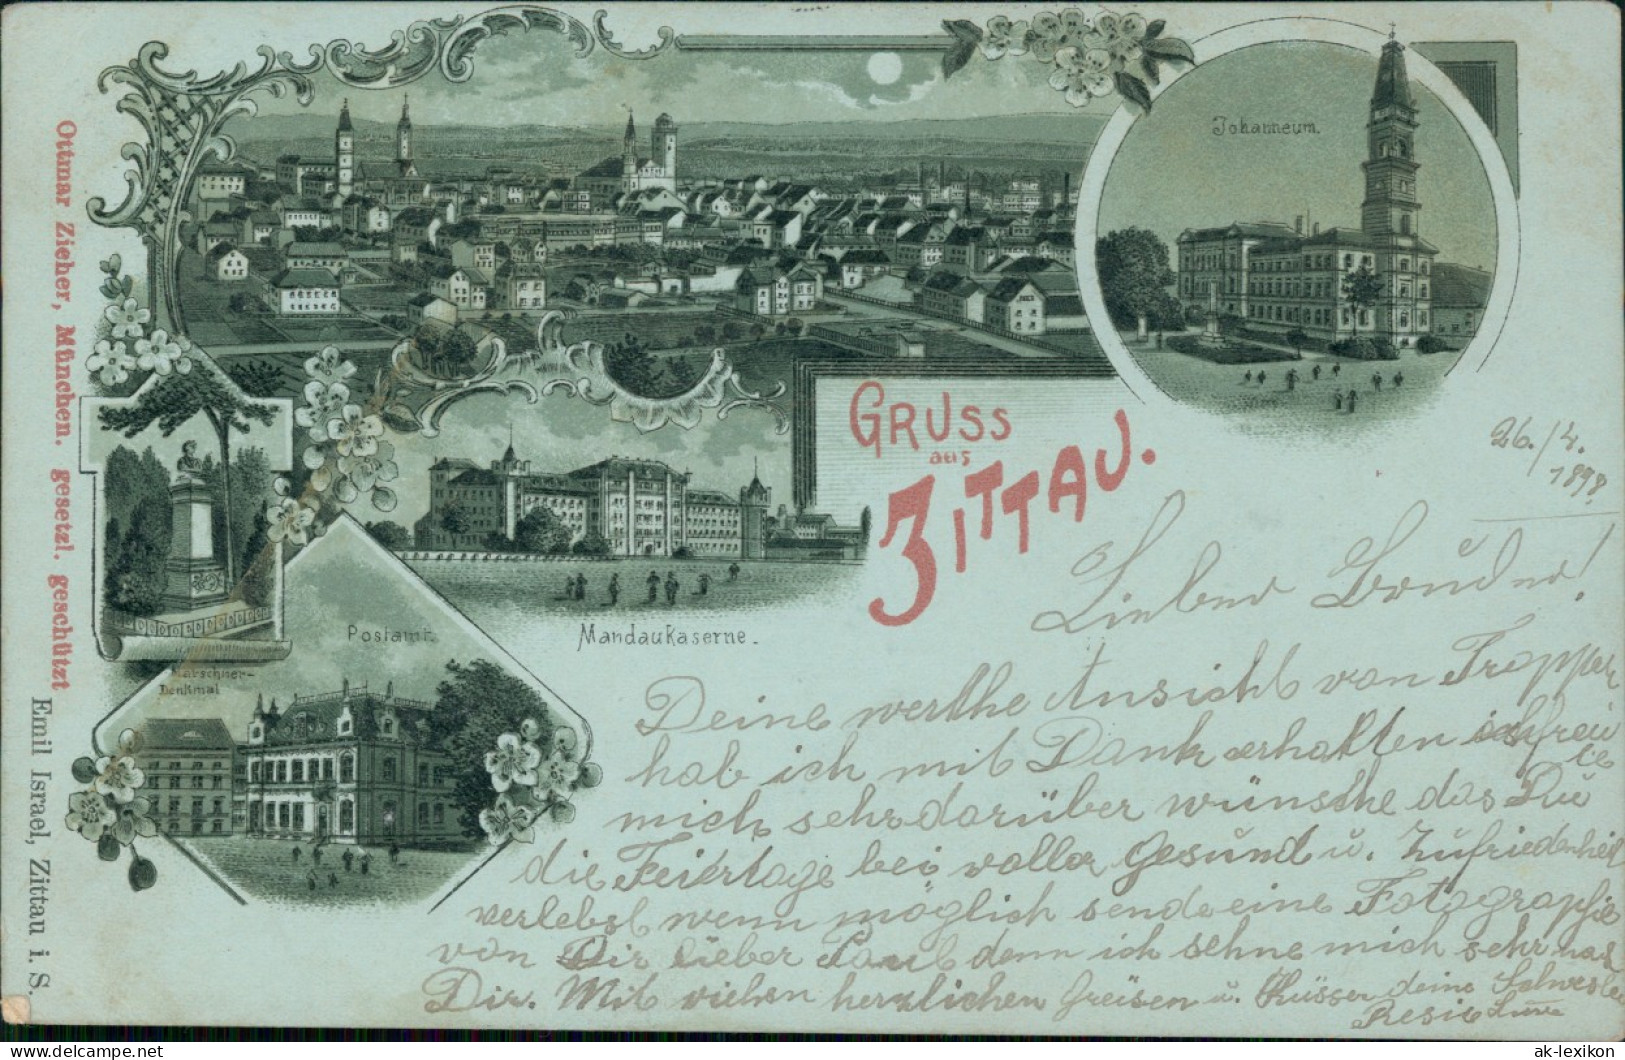 Ottmar Zieher, München. gesetzl. geschützt
Emil Israel, Zittau i. S.
Johanneum.
GRUSS
aus
ZITTAU.
Mandaukaserne.
Marschner-
Denkmal
Postamt.
26./4.
1898.
Lieber Bruder!
Deine werthe Ansicht von Troppau
hab ich mit Dank erhalten ich freue
mich sehr darüber wünsche das Du
die Feiertage bei voller Gesund u. Zufriedenheit
verlebst wenn möglich sende eine Fotographie
von Dir lieber denn ich sehne mich sehr nach
Dir. Mit vielen herzlichen Grüsen u. Küssen deine Schwester
Resi
ak-lexikon
www.delcampe.net